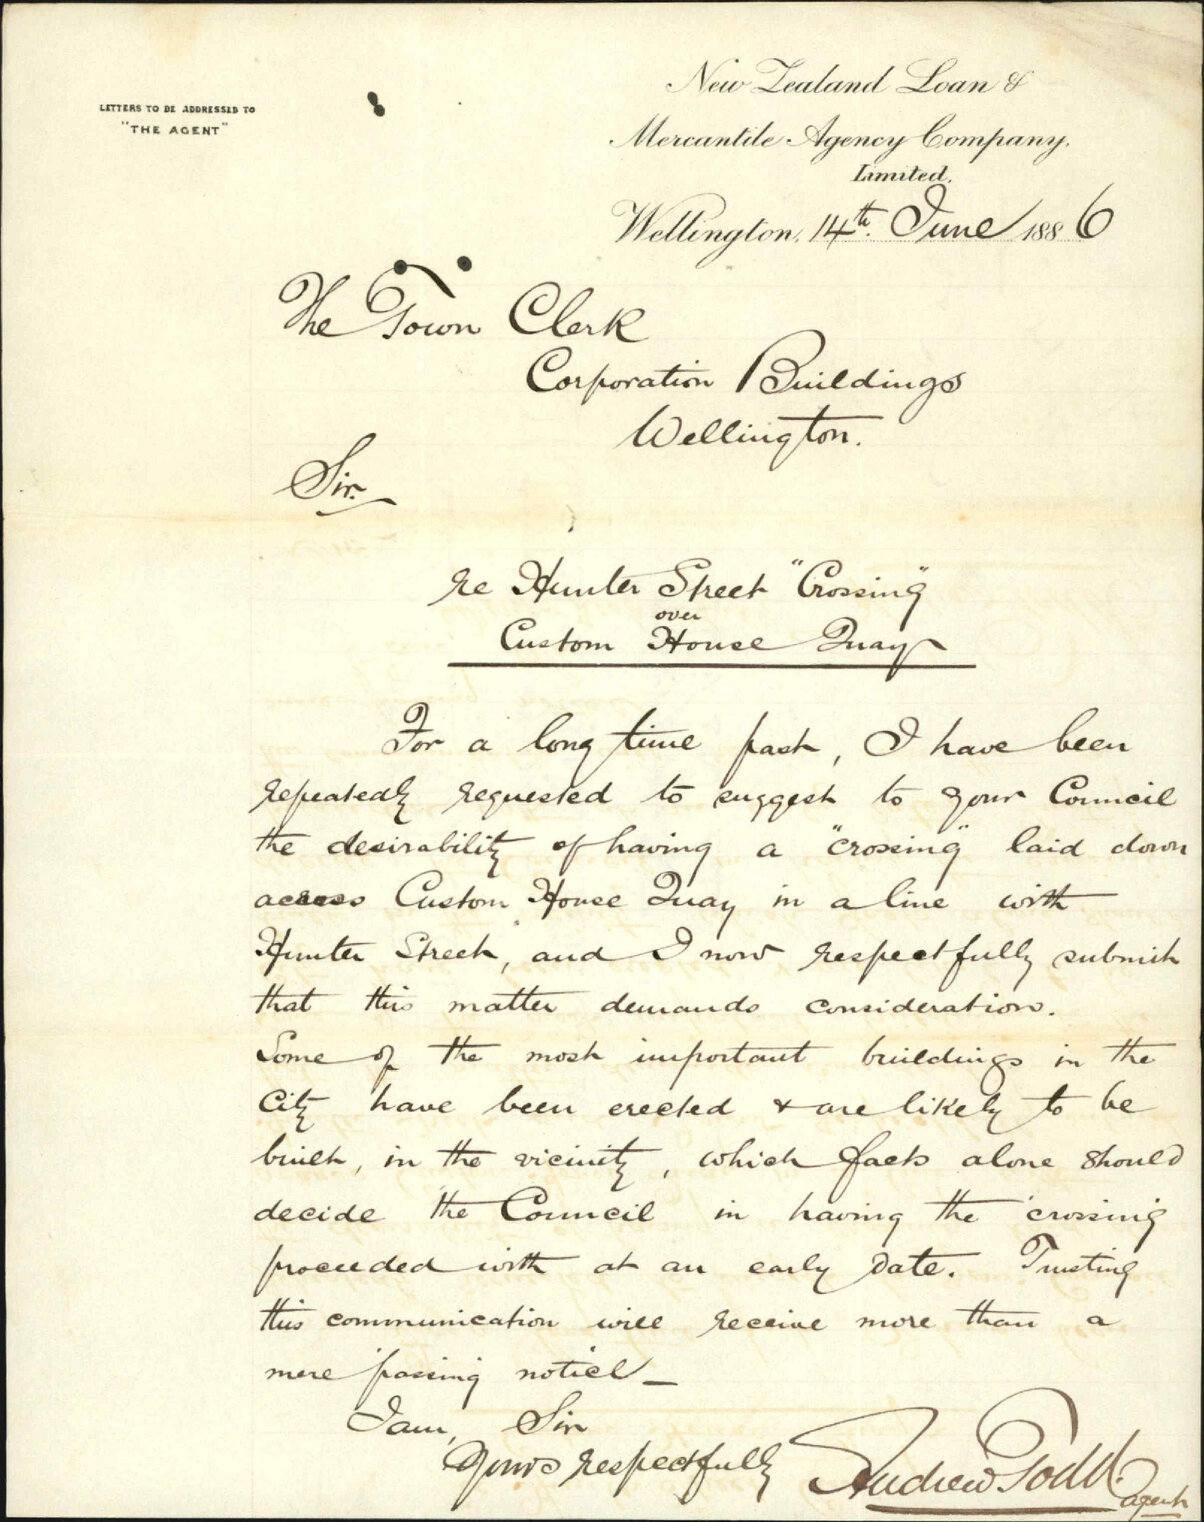 LETTERS TO BE ADDRESSED TO
"THE AGENT"
New Zealand Loan &
Mercantile Agency Company,
Limited.
Wellington, 14th. June 1886
The Town Clerk
Corporation Buildings
Wellington.
Sir.
re Hunter Street "Crossing"
over
Custom House Quay
For a long time past, I have been
repeatedly requested to suggest to your Council
the desirability of having a "crossing" laid down
across Custom House Quay in a line with
Hunter Street, and I now respectfully submit
that this matter demands consideration.
Some of the most important buildings in the
City have been erected & are likely to be
built, in the vicinity, which facts alone should
decide the Council in having the crossing
proceeded with at an early date. Trusting
this communication will receive more than a
mere passing notice_
I am, Sir
Yours respectfully
Andrew Todd.
agent